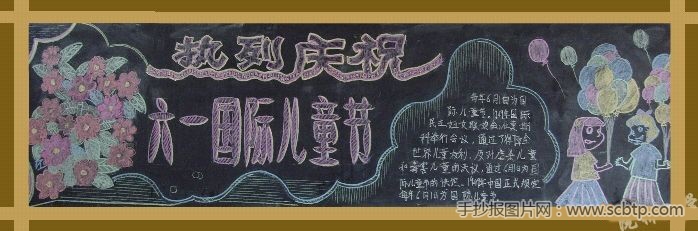 热烈庆祝
六一国际儿童节
每年6月1日为国
际儿童节。1949年国际
民主妇女联
科举行会议，通过了保障全
世界儿童权利，反对虐杀儿童
和毒害儿童的决议，通过6月1日为国
际儿童节的决定。1949年中国正式规定
每年6月1日为国际儿童节
手抄报图片网：www.scbtp.com